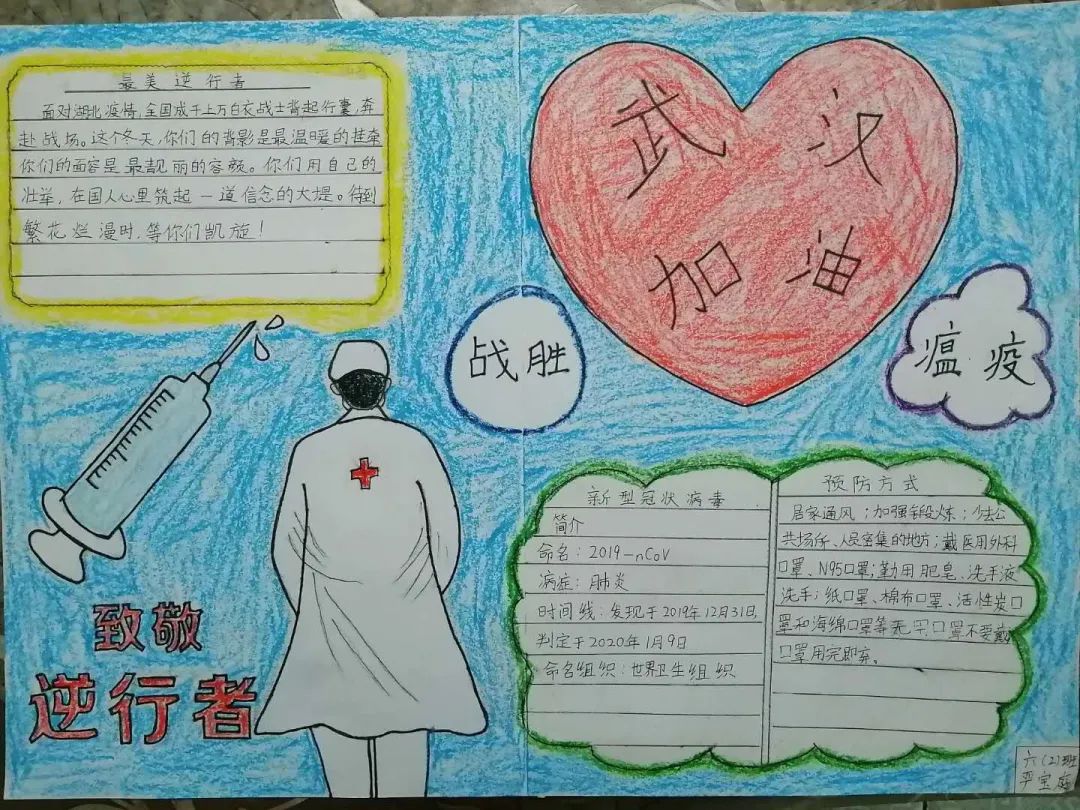 最美逆行者
面对湖北疫情,全国成千上万白衣战士背起行囊,奔
赴战场。这个冬天,你们的背影是最温暖的挂牵
你们的面容是最靓丽的容颜。你们用自己的
壮举,在国人心里筑起一道信念的大堤。待到
繁花烂漫时,等你们凯旋!
武汉
加油
战胜
瘟疫
致敬
逆行者
新型冠状病毒
简介
命名:2019-nCoV
病症:肺炎
时间线:发现于2019年12月31日,
判定于2020年1月9日
命名组织:世界卫生组织
预防方式
居家通风;加强锻炼;少去公
共场所、人员密集的地方;戴医用外科
口罩、N95口罩;勤用肥皂、洗手液
洗手;纸口罩、棉布口罩、活性炭口
罩和海绵口罩等无口罩不要戴
口罩用完即弃。
六(2)班
宝庭